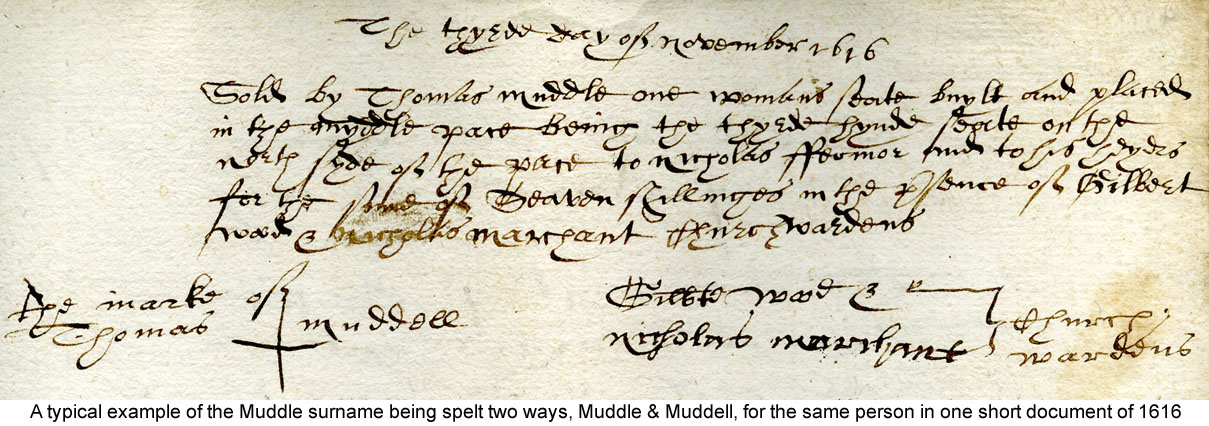 The thyrde day of November 1616
Sold by Thomas Muddle one womans seate buylt and placed
in the myddle pace being the thyrde hynde seate on the
north syde of the pace to Nicholas ffermor and to his heyers
for the some of Seaven shillinges in the psence of Gilbert
wood & Nicholas Marchant Churchwardens
The marke of
Thomas Muddell
Gilbte wood &
Nicholas Marchant
Church
wardens
A typical example of the Muddle surname being spelt two ways, Muddle & Muddell, for the same person in one short document of 1616